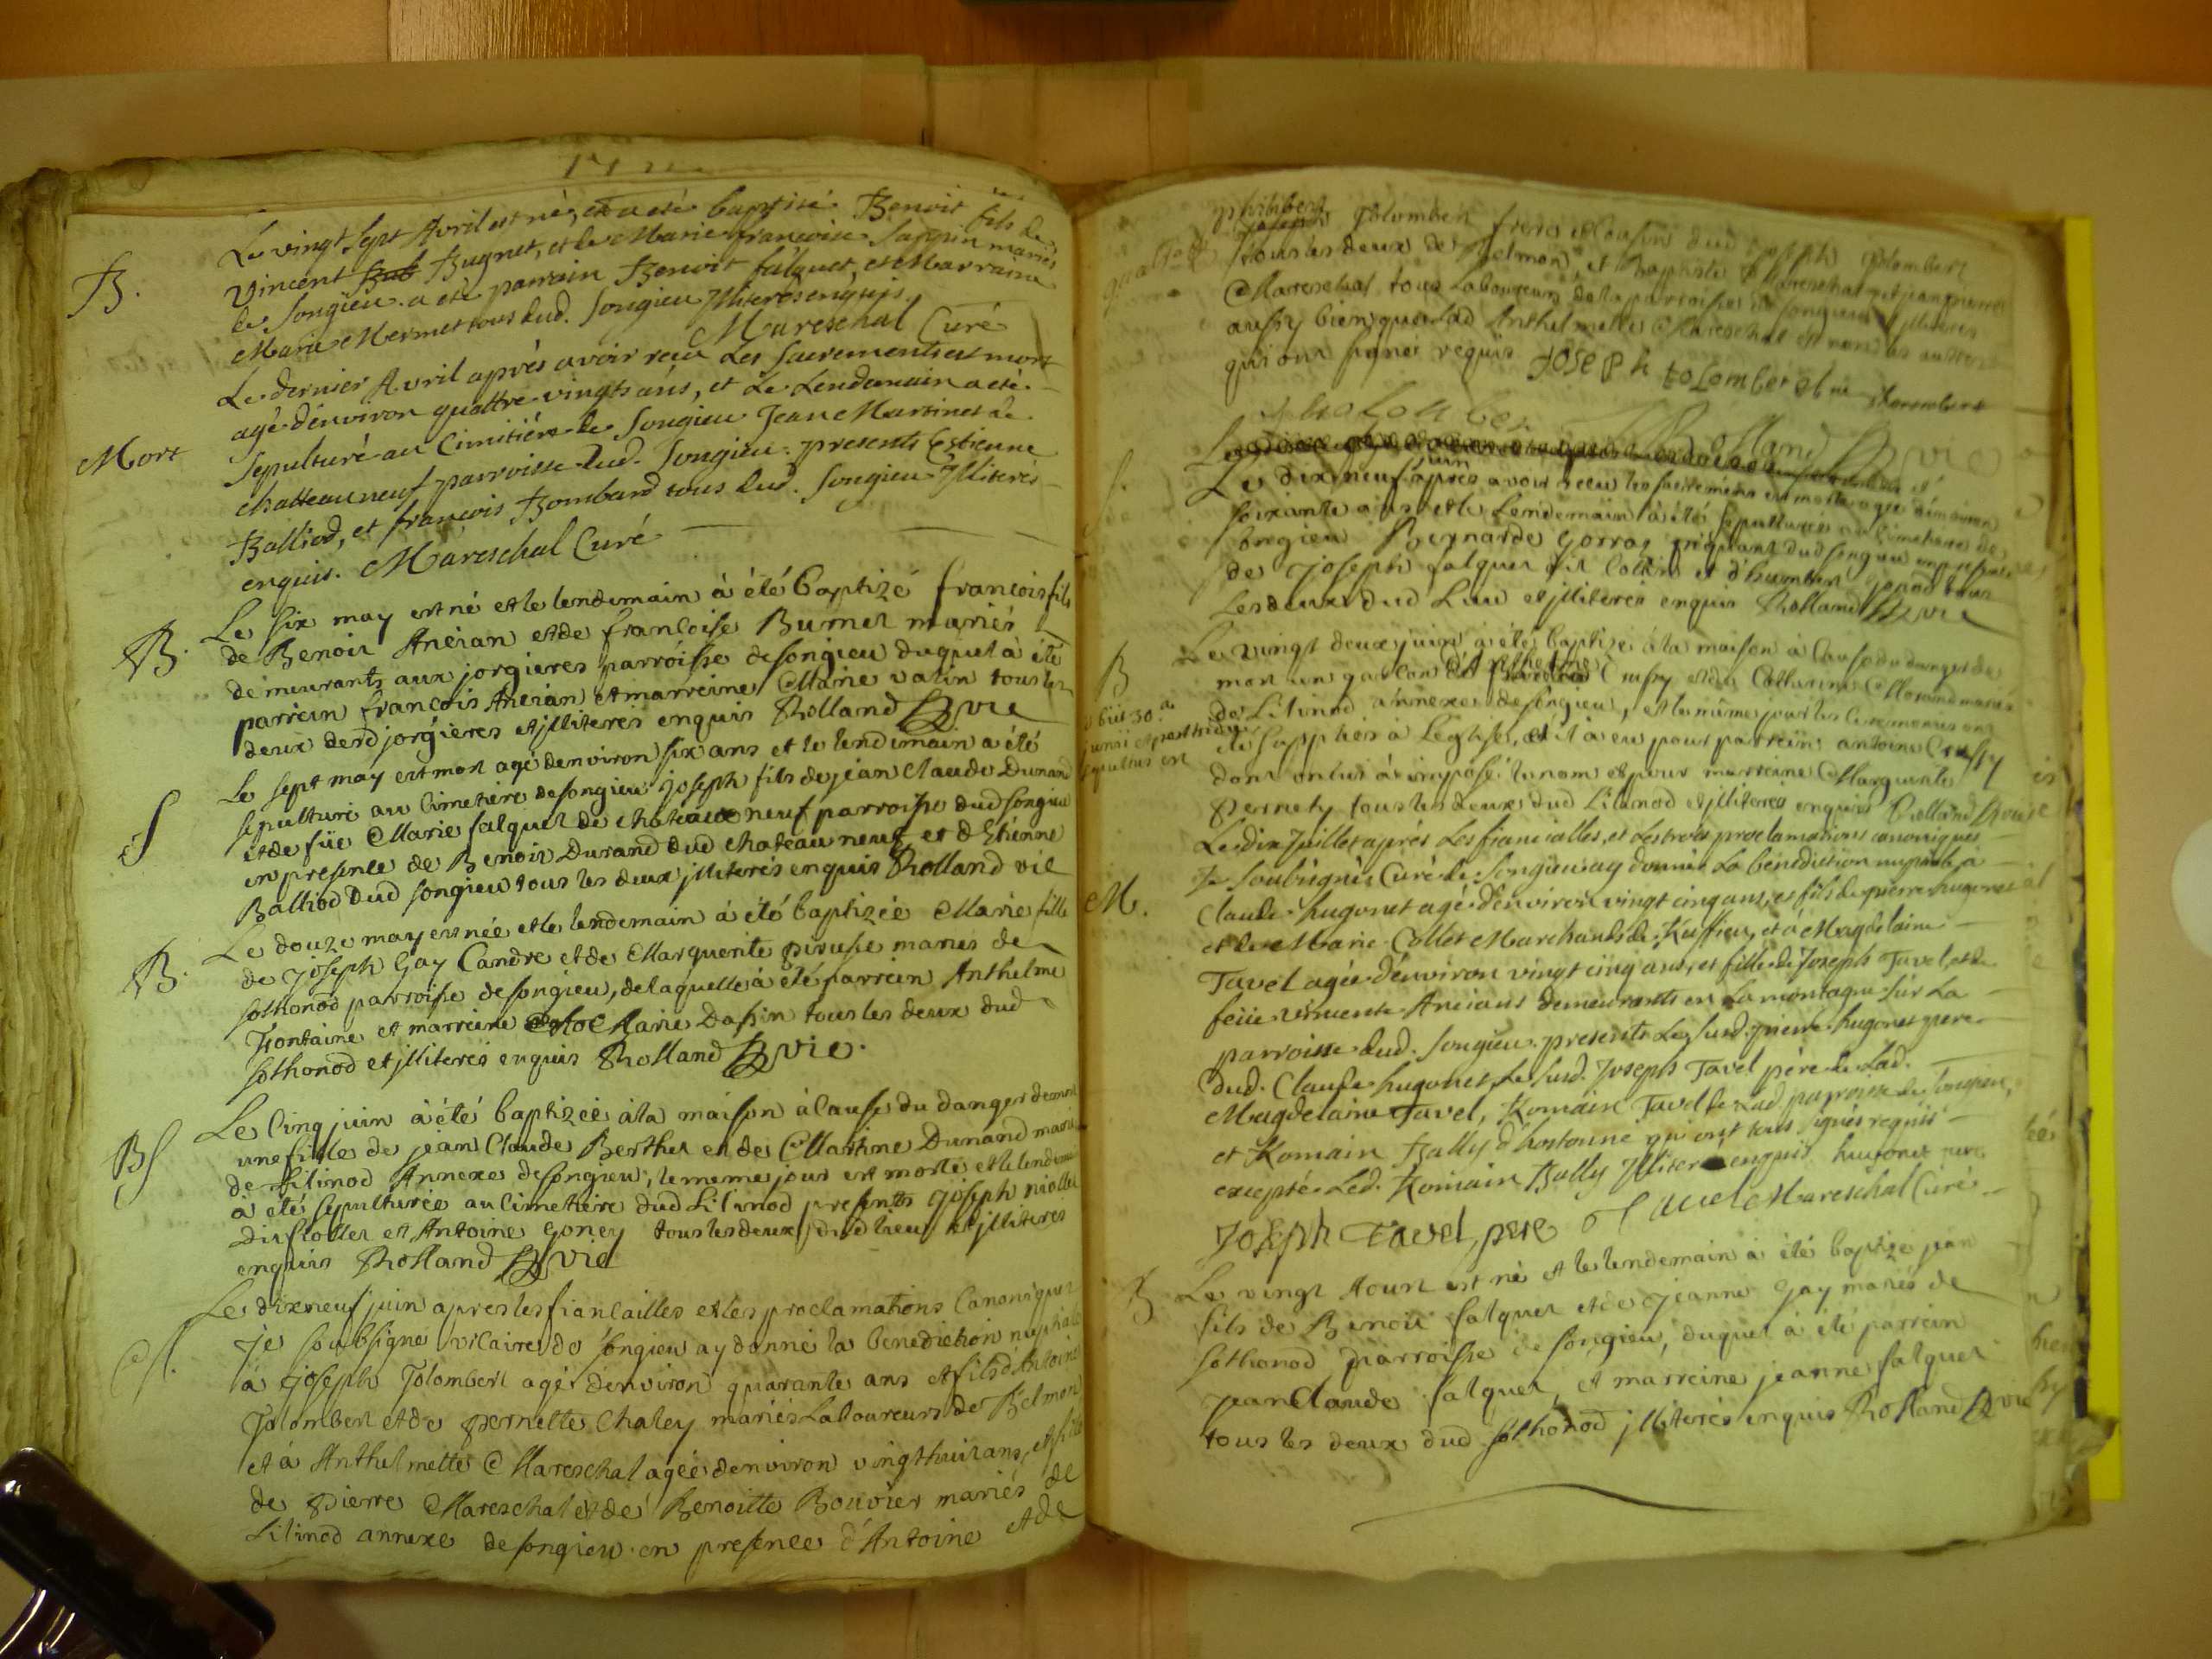 B.
Le vingt sept Avril est né, et a eté baptisé Benoit fils de
Vincent Bub Bugnet, et de Marie françoise Sappin mariés
de Songieu. a eté parrain Benoit falquet, et Marraine
Marie Mermet tous dud. Songieu Jlliterés enquis.
Mareschal Curé
Mort
Le dernier Avril aprés avoir recu Les Sacrements est mort
agé d'environ quattre vingts ans, et Le Lendemain a eté
sepulturé au Cimitiére de Songieu Jean Martinet de
chatteauneuf parroisse dud. Songieu. presents Estienne
Balliod, et françois Bombard tous dud. Songieu Jlliterés
enquis. Mareschal Curé
B.
Le six may est né et le lendemain à été baptizé francois fils
de Benoit Ancian et de francoise Burnet mariés
demeurants aux jorgieres parroisse de songieu duquel à été
parrein francois Ancian et marreine Marie vatin tous les
deux desd jorgieres et jlliterés enquis Rolland vic
S
Le sept may est mort agé denviron six ans et le lendemain a été
sepulturé au Cimetiere de songieu joseph fils de jean claude Dunand
et de füe Marie falquet de chateauxneuf parroisse dud songieu
en presence de Benoit Durand dud chateauneuf, et d Etienne
Balliod dud songieu tous les deux jlliterés enquis Rolland vic
B.
Le douze may est née et le lendemain à été baptizée Marie fille
de joseph Gay Candre et de Marguerite pivuse mariés de
sothonod parroisse de songieu, de laquelle à été parrein Anthelme
fontaine et marreine Marie Dassin tous les deux dud
sothonod et jlliterés enquis Rolland vic.
BS
Le cinq juin à été baptizée à la maison à cause du danger de mort
une fille de jean claude Berthet et de Martine Dunand mariés
de Lilinod Annexe de songieu, le meme jour est morte et le lendemain
à été sepulturée au cimetiere dud Lilinod presents joseph niollet
dit flottet et Antoine goney tous les deux dud lieu et jlliterés
enquis Rolland vic
M.
Le dixneuf juin apres les fiancailles et les proclamations Canoniques
je soubsigné vicaire de songieu ay donné la benediction nuptiale
à joseph Jolombert agé denviron quarante ans et fils d'Antoine
Jolombert et de pernette Chaley mariés Laboureurs de Belmon
et à Anthelmette Mareschal agée denviron vingthuit ans, et fille
de pierre Mareschal et de Benoitte Bouvier mariés de
Lilinod annexe de songieu. en presence d'Antoine et de
philibert Jolombert frere et Cousin dud joseph Jolombert
tous les deux de Belmon, et Baptiste Mareschal et jean pierre
Mareschal tous Laboureurs de la parroisse de songieu Jlliterés
aussy bien que Lad Anthelmette Mareschal et non les autres
qui ont signé requis JOSEPH Jolombert
Rolland vic
S.
Le dixneuf juin aprés avoir recu les sacrements est morte agée d'environ
soixante ans et le lendemain à été sepulturée au Cimetiere de
songieu Bernarde gorraz dud songieu en presence
de joseph falquet dit Collin et d'humbert tous
Les deux dud Lieu et jlliterés enquis Rolland vic
B
obiit 30.a
junii et postridie
sepultus est
Le vingt deux juin à été baptizé à la maison à Cause du danger de
mort un garcon d'Anthelme Crussy et de Catherine Morand mariés
de Lilinod Annexe de songieu, et le même jour les ceremonies ont
été supplées à L'eglise, et il à eu pour parrein antoine Crussy
dont on lui à imposé le nom et pour marreine Marguerite
Pernety tous les deux dud Lilinod et jlliterés enquis Rolland vic
M.
Le dix Juillet aprés Les fiancialles, et Les trois proclamations canoniques
Je soubsigné Curé de Songieu ay donné La benediction nuptiale à
Claude hugonet agé d'environ vingt cinq ans, et fils de pierre hugonet
et de Marie Collet Marchands de Ruffieu, et à Magdelaine
Tavel agée d'environ vingt cinq ans, et fille de Joseph Tavel, et de
feüe vincente Anciant demeurants en La montagne sur La
parroisse dud. Songieu. presents Le susd. pierre hugonet pere
dud. Claude hugonet, Le susd. Joseph Tavel pére de Lad.
Magdelaine Tavel, Romain Tavel de Lad. parroisse de songieu,
et Romain Bally d'hostonne qui ont tous signés requis
excepté Led. Romain Bally Jlliteré enquis hugonet
Joseph Tavel, pere Tavel Mareschal Curé
B
Le vingt Aoust est né et le lendemain à été baptizé jean
fils de Benoit falquet et de jeanne Gay mariés de
sothonod parroisse de songieu, duquel à été parrein
jean Claude falquet, et marreine jeanne falquet
tous les deux dud sothonod jlliterés enquis Rolland vic